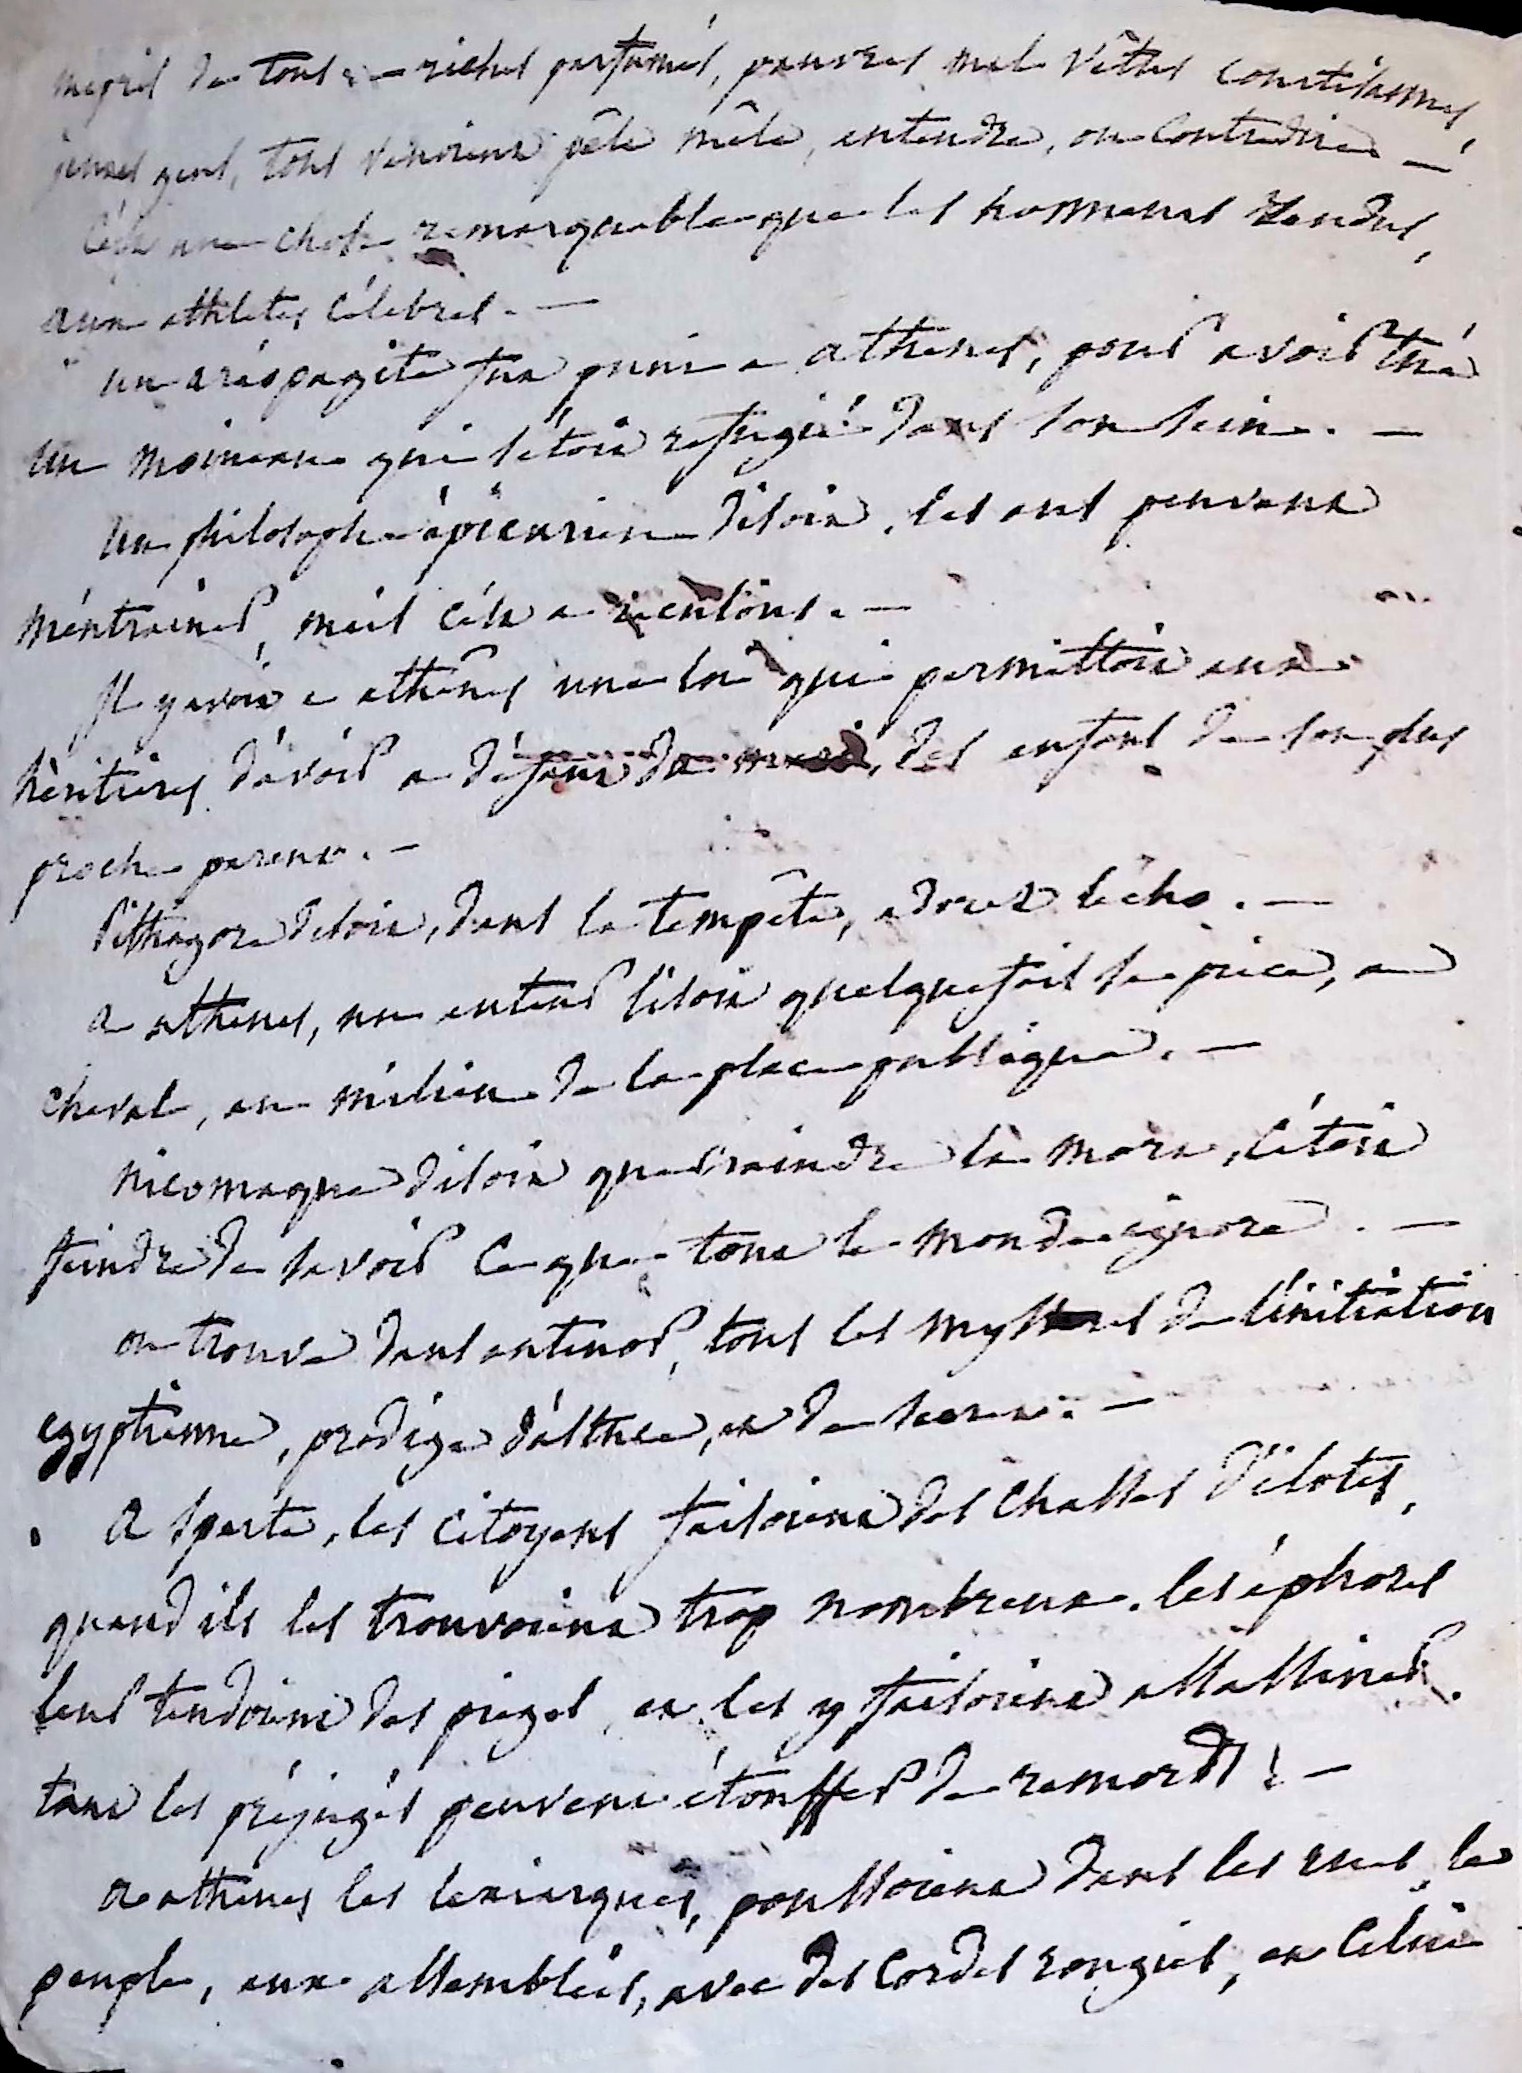 mépris de tous – riches parfumés, pauvres mal vêtus courtisannes,
jeunes gens, tous venoient pêle mêle, entendre, ou contredire –
c'est une chose remarquable que les hommages rendus,
aux athletes célebres. –
un aréopagite fut puni a athenes, pour avoir tué
un moineau qui s'étoit refugié dans son sein. –
un philosophe épicurien disoit, les ans peuvent
m'entrainer, mais c'est a reculons. –
Il y avoit a athênes une loi qui permettoit aux
hèritieres d'avoir a défaut du mari, des enfans de son plus
proche parent. –
Pithagore disoit, dans la tempête, adorez l'écho. –
a athenes, un auteur lisoit quelquefois sa piece, a
cheval, au milieu de la place publique. –
nicomaque disoit que craindre la mort, c'étoit
feindre de savoir ce que tout le monde ignore. –
on trouve dans antenor, tous les mysteres de l'initiation
egyptienne, prodige d'adresse, et de secret. –
a sparte, les citoyens faisoient des chasses d'ilotes,
quand ils les trouvoient trop nombreux. les éphores
leur tendoient des pieges, et les y faisoient assassiner.
tant les préjugés peuvent étouffer de remords! –
a athènes les lexiarques, poussoient dans les rues, le
peuple, aux assemblées, avec des cordes rougies, et celui